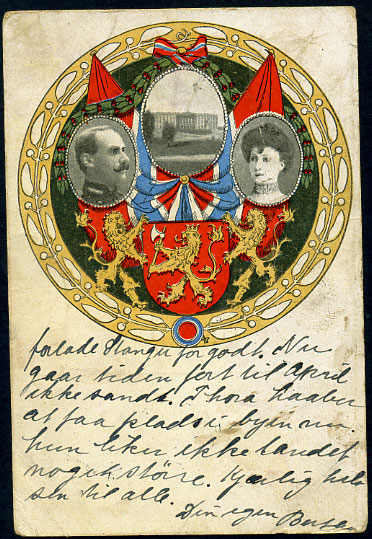 forlade Stange for godt. Nu
gaar tiden fort til April
ikke sandt. Thora haaber
at faa plads i byen nu.
hun liker ikke landet
noget større. Kjærlig hil
sen til alle.
Din egen